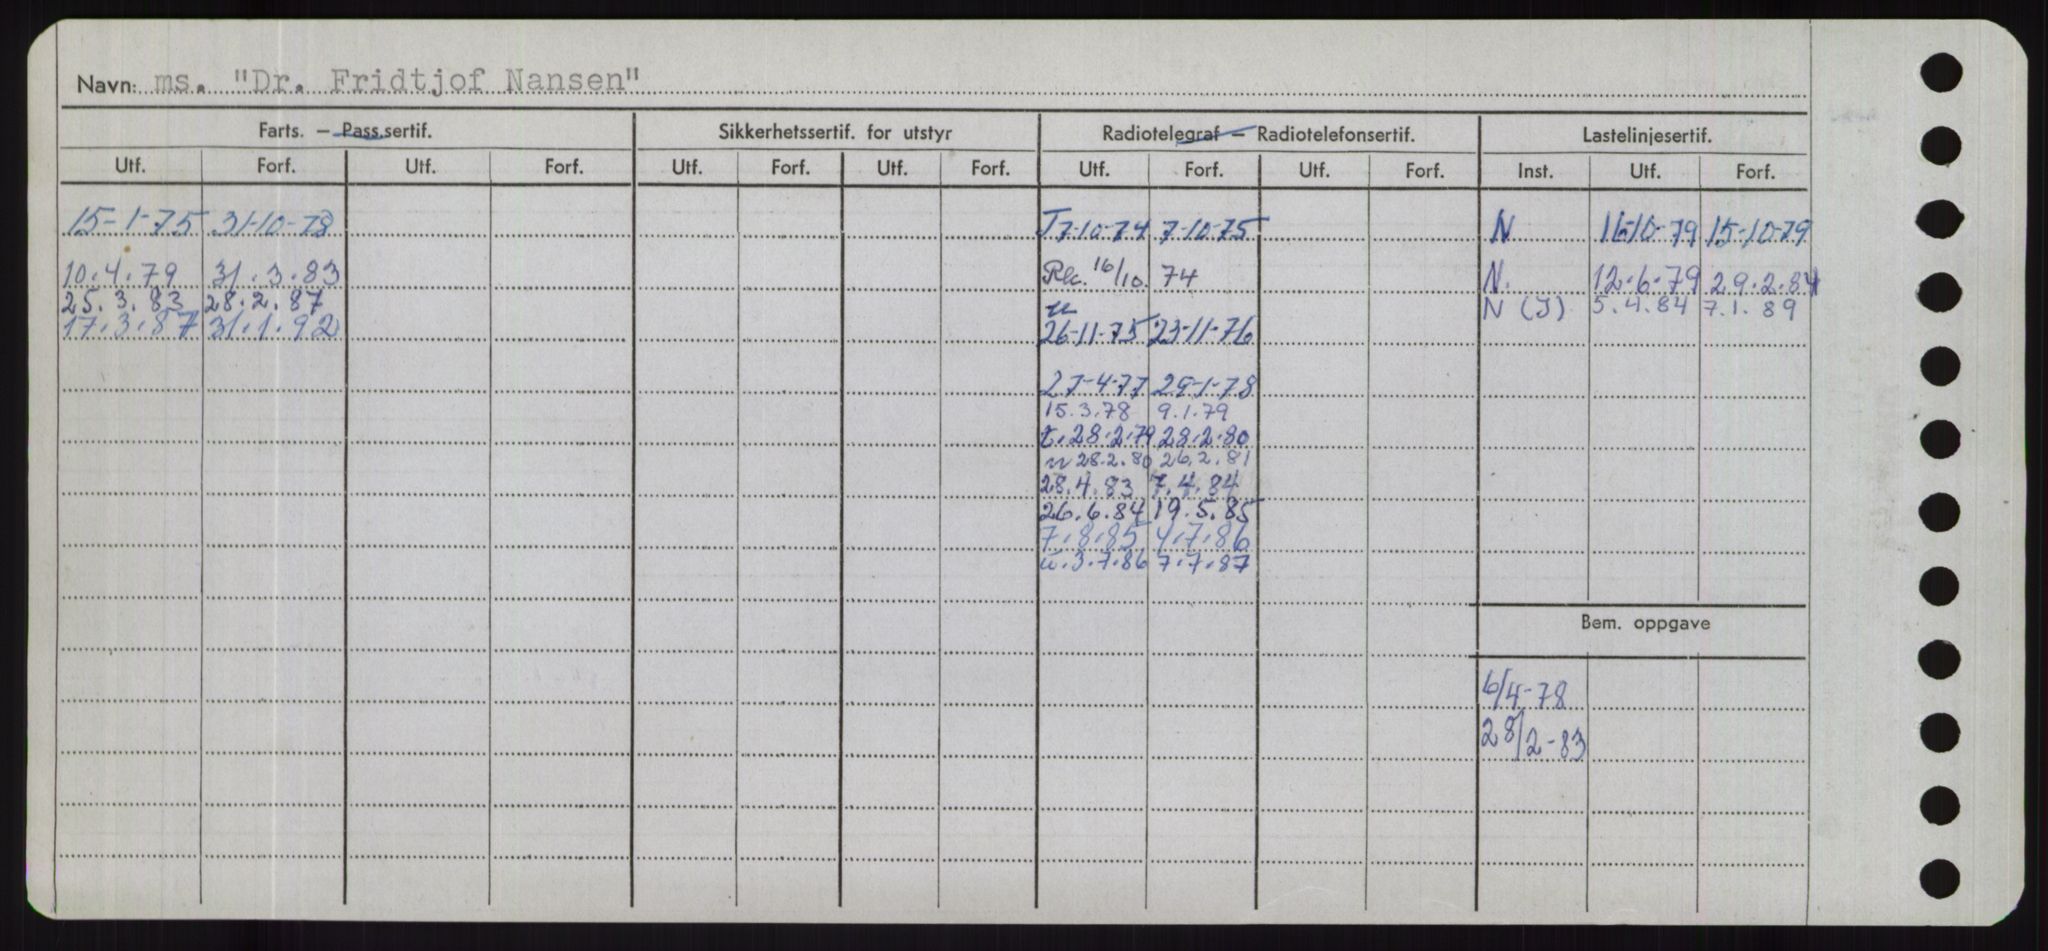 Navn: ms. "Dr. Fridtjof Nansen"
Farts. – Pass.sertif. Sikkerhetssertif. for utstyr Radiotelegraf – Radiotelefonsertif. Lastelinjesertif.
Utf. Forf. Utf. Forf. Utf. Forf. Utf. Forf. Utf. Forf. Utf. Forf. Inst. Utf. Forf.
15-1-75 31-10-78 T7-10-74 7-10-75 N 16-10-79 15-10-79
10.4.79 31.3.83 Rec. 16/10 74 N. 12.6.79 29.2.84
25.3.83 28.2.87 N (I) 5.4.84 7.1.89
17.3.87 31.1.92 26-11-75 23-11-76
27-4-77 29-1-78
15.3.78 9.1.79
t.28.2.79 28.2.80
n 28.2.80 26.2.81
28.4.83 7.4.84
26.6.84 19.5.85
7.8.85 4.7.86
u.3.7.86 7.7.87
Bem. oppgave
6/4-78
28/2-83